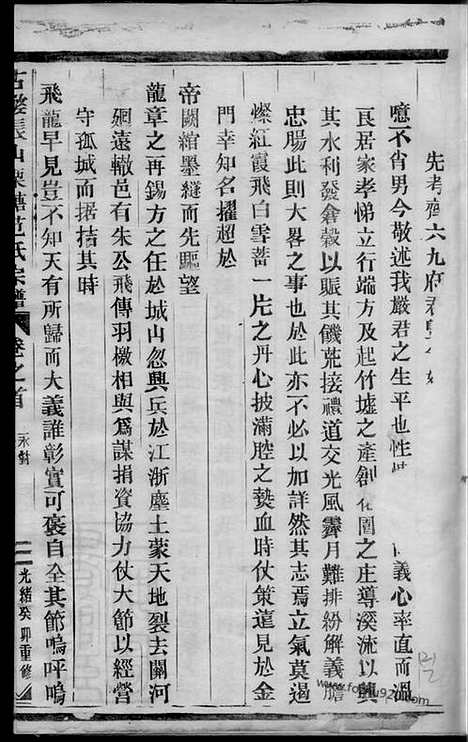 先考齊六九府君
噫不肖男今敬述我嚴君之生平也性 義心率直而溫
良居家孝悌立行端方及起竹墟之產創 圍之庄導溪流以興
其水利發倉穀以賑其饑荒接禮道交光風霽月難排紛解義膽
忠腸此則大畧之事也於此亦不必以加詳然其志焉立氣莫遏
燦紅霞飛白雪蓄一片之丹心披滿腔之熱血時仗策蓮見於金
門幸知名擢超於
帝闕綰墨縫而先驅望
龍章之再錫方之任於城山忽興兵於江浙塵土蒙天地裂去關河
廻遠轍邑有朱公飛傳羽檄相與爲謀捐資協力仗大節以經營
守孤城而拮据其時
飛龍早見豈不知天有所歸而大義誰彰實可褒自全其節嗚呼嗚
古婺長山栗塘范氏宗譜 卷之首
光緒癸卯重修